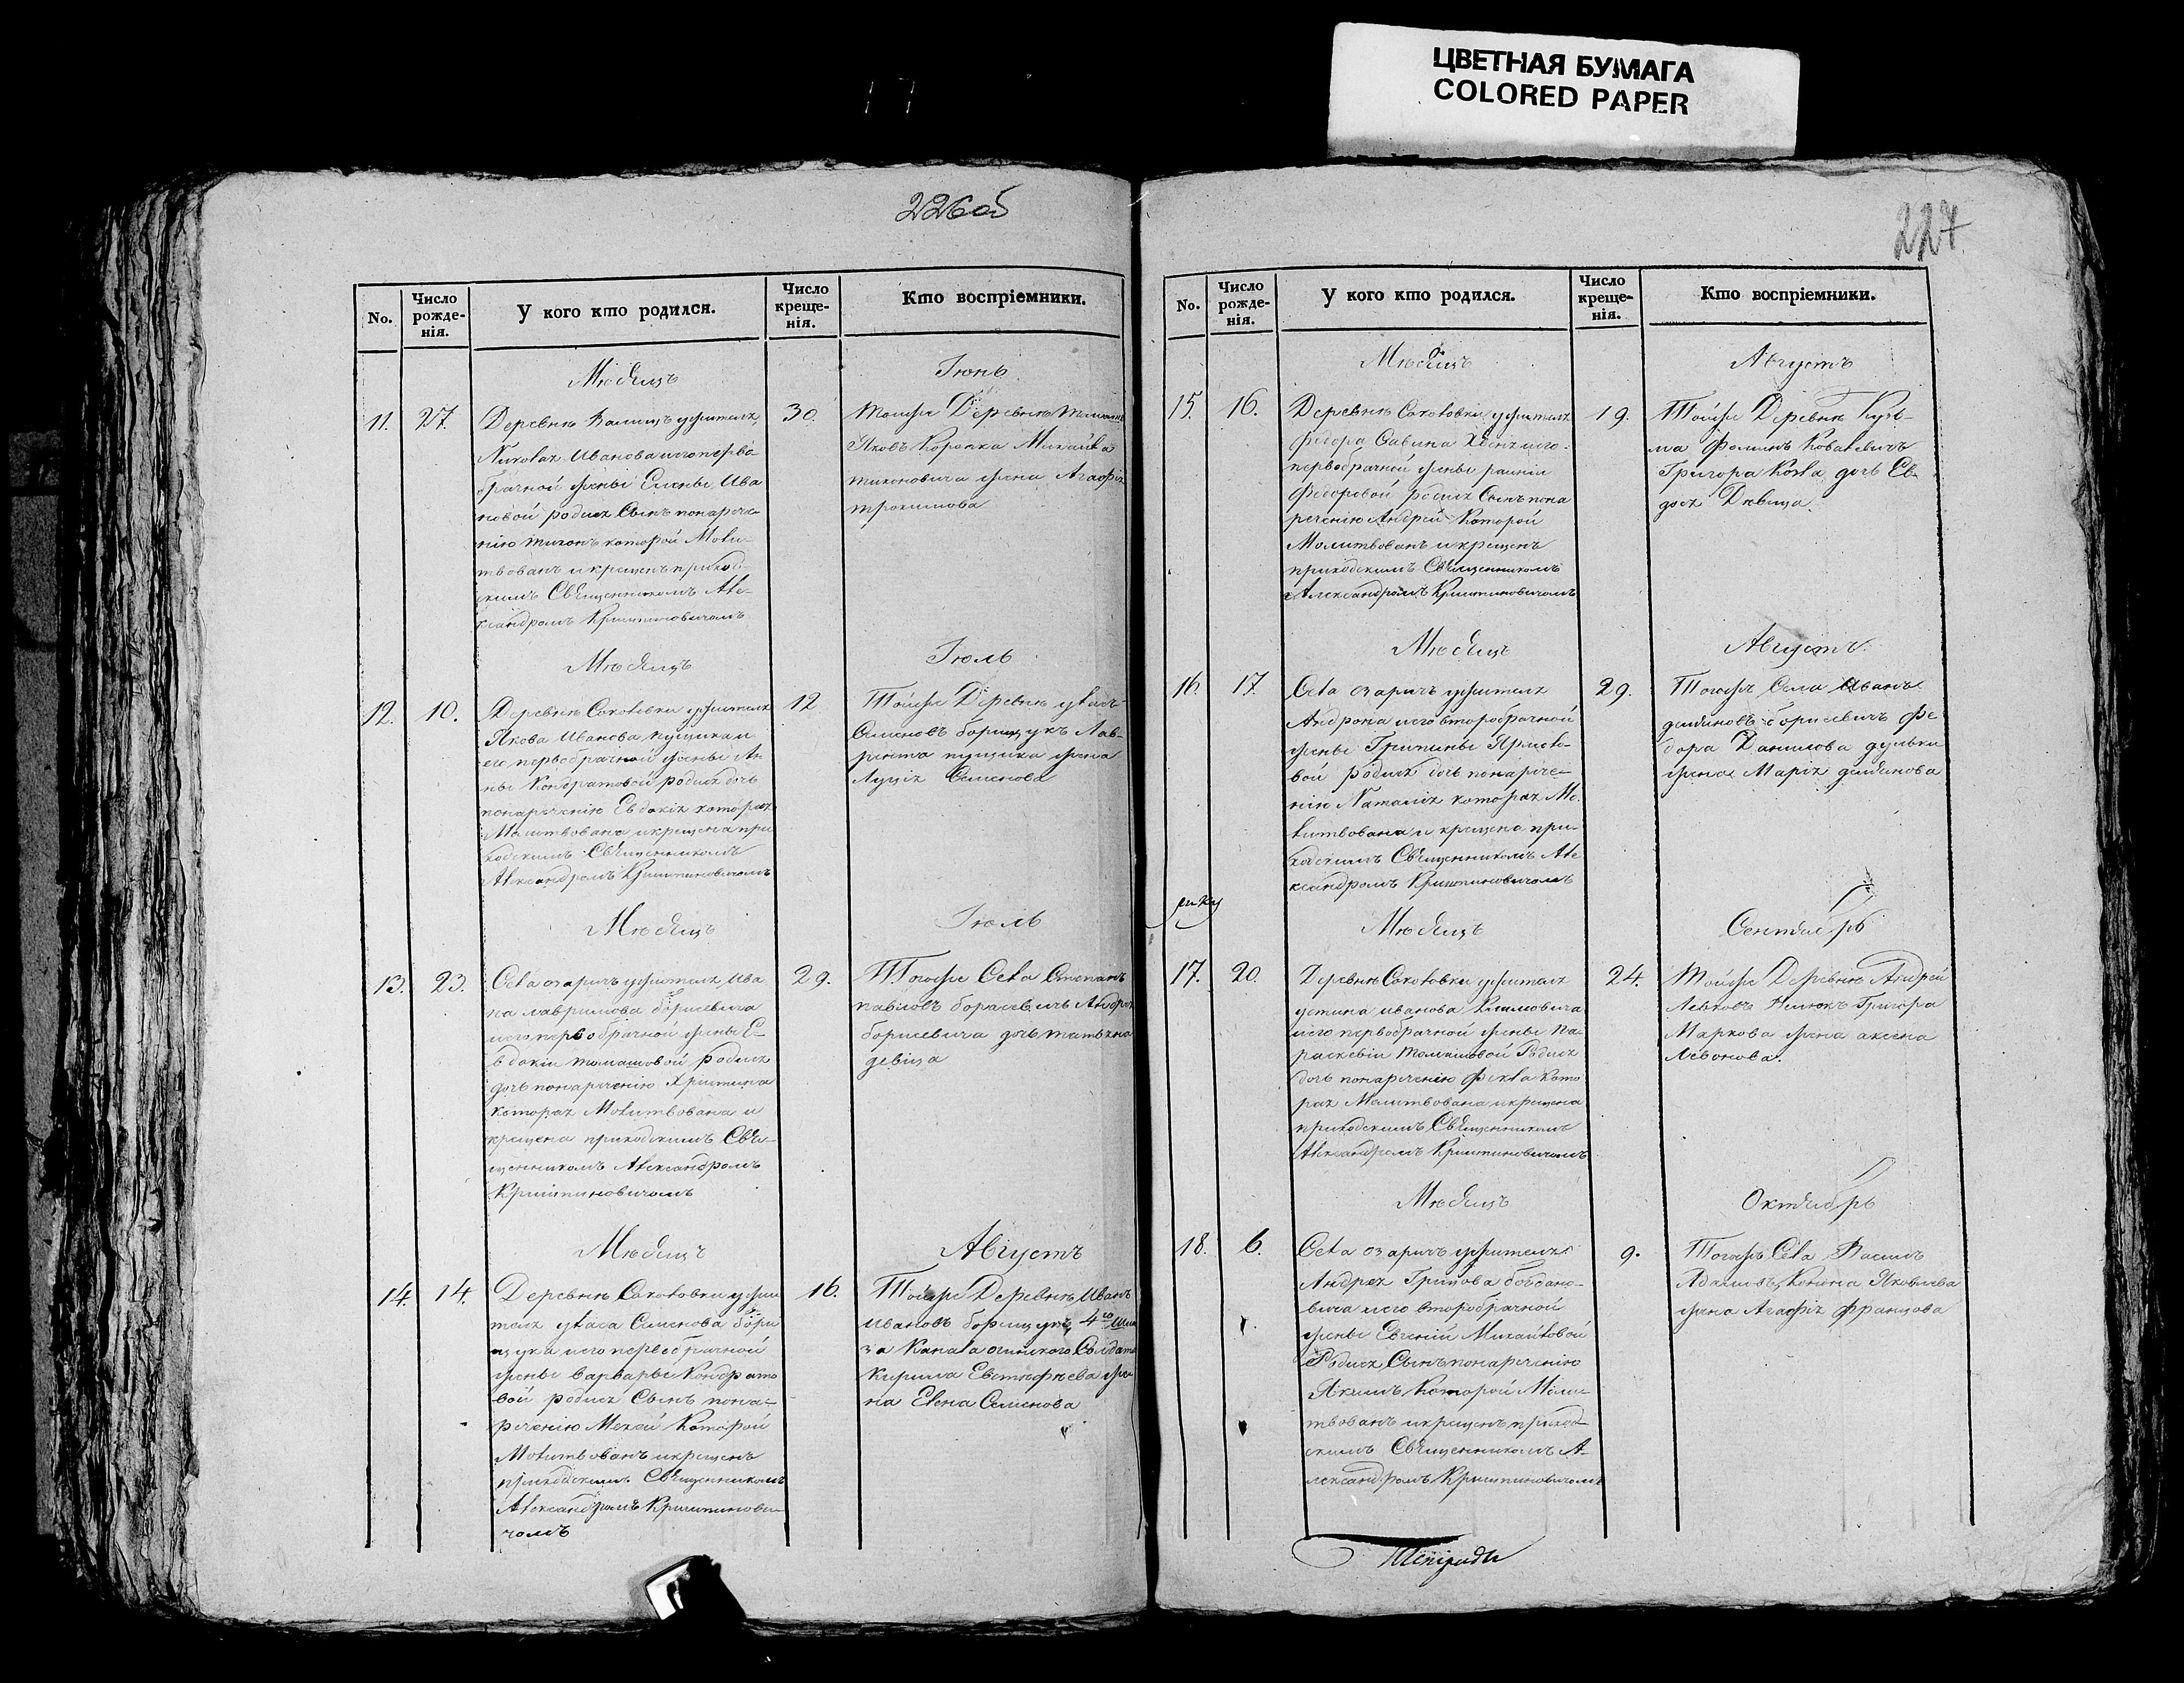 ЦВЕТНАЯ БУМАГА
COLORED PAPER
226 об
No.
Число рожде-нія.
У кого кто родился.
Число креще-нія.
Кто воспріемники.
Мѣсяцъ
Іюнь
11. 27. 30.
Деревнѣ Валищъ ужителя
Николая Иванова иегоперво
брачной жены Елены Ива
новой родися Сынъ понарече
нію тихонъ которой Моли
твованъ икрещенъ приход-
скимъ Священникомъ Але-
ксандромъ Криштиновичомъ
тоиже Деревнѣ
Яковъ Коропка Михайла
тихоновича жена Агафія
трохимова
Мѣсяцъ
Іюль
12. 10. 12
Деревнѣ Соколовки ужителя
Якова Иванова пущика и
его первобрачной жены Ан
ны Кондратовой родися дочь
понареченію Евдокія которая
Молитвована икрещена при
ходскимъ Священникомъ
Александромъ Криштиновичомъ
Тойже Деревнѣ уласъ
Семеновъ борищукъ Лав-
рента пущика жена
Луція Семенова
Мѣсяцъ
Іюль
13. 23. 29.
Села озаричъ ужителя Ива
на лавринова борисевича
иего первобрачной жены Е-
вдокіи томашовой родися
дочь понареченію Христина
которая Молитвована и
крещена приходскимъ Свя-
щенникомъ Александромъ
Криштиновичомъ
Тогоже Села Степанъ
павловъ борисевичъ Андрея
борисевича дочь татьяна
девица
Мѣсяцъ
Августъ
14. 14. 16.
Деревнѣ Соколовки ужи
теля уласа Семенова бори
щука иего первобрачной
жены варвары Кондрато
вой родися Сынъ пона-
реченію Мокей Которой
Молитвованъ икрещенъ
приходскимъ Священникомъ
Александромъ Криштинови
чомъ
Тойже Деревнѣ Иванъ
Ивановъ борищукъ 4го Шлю
за Канала огинского Солдата
Кирила Евстафіева же
на Елена Семенова
227
No.
Число рожде-нія.
У кого кто родился.
Число креще-нія.
Кто воспріемники.
Мѣсяцъ
Августъ
15. 16. 19.
Деревнѣ Соколовки ужителя
федора Савина иего
первобрачной жены
Федоровой родися Сынъ пона
реченію Андрей Которой
Молитвованъ икрещенъ
приходскимъ Священникомъ
Александромъ Криштиновичомъ
Тойже Деревнѣ Кузь-
ма Фоминъ Ковалевичъ
Григора Козла дочь Ев-
докія Дѣвица.
Мѣсяцъ
Августъ
16. 17. 29.
Села озаричъ ужителя
Андрона иего второбрачной
жены Грипины Ярмоло-
вой родися дочь понарече-
нію Наталія которая Мо-
литвована и крещена при-
ходскимъ Священникомъ Але
ксандромъ Криштиновичомъ
Тогожъ Села Иванъ
демяновъ борисевичъ Фе
дора Данилова дулевки
жена Марія демянова
Мѣсяцъ
Сентябрь
17. 20. 24.
Деревнѣ Соколовки ужителя
устина иванова Климовича
иего первобрачной жены Па-
раскевіи Родися
дочь понареченію Фекла кото
рая Молитвована икрещена
приходскимъ Священникомъ
Александромъ Криштиновичомъ
Тойже Деревнѣ Андрей
Левковъ Григора
Маркова жена аксена
Левонова.
Мѣсяцъ
Октябрь
18. 6. 9.
Села озаричъ ужителя
Андрея Гришова богдано-
вича иего второбрачной
жены Евгеніи Михайловой
Родися Сынъ понареченію
Якимъ Которой Моли-
твованъ икрещенъ приход-
скимъ Священникомъ А-
лександромъ Криштиновичомъ
Тогожъ Села Василь
Адамовъ, Конона Яковлева
жена Агафія францова